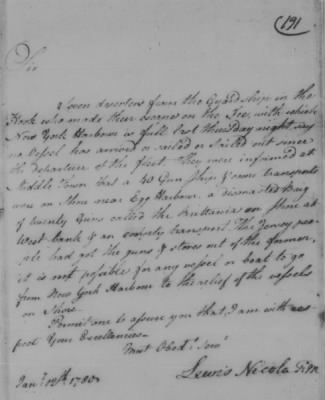 (191)
Sir
Seven deserters from the Guardship in the
Hook who made their escape on the Ice, with which
New York Harbour is full last thursday night, say
no Vessel has arrived or sailed or sailed out since
the departure of the fleet. They were informed at
Middle Town that a 40 Gun Ship & some transports
were on shore near Egg Harbour, a dismasted Brig
of twenty Guns called the Britania on shore at
West bank & an empty transport. The Jersey peo-
ple had got the guns & stores out of the former,
it is not possible for any vessel or boat to go
from New York Harbour to the relief of the vessels
on Shore.
Permit me to assure you that I am with res-
pect Your Excellencies
Most Obedt. Serv
Lewis Nicola
Jany. 12th. 1780